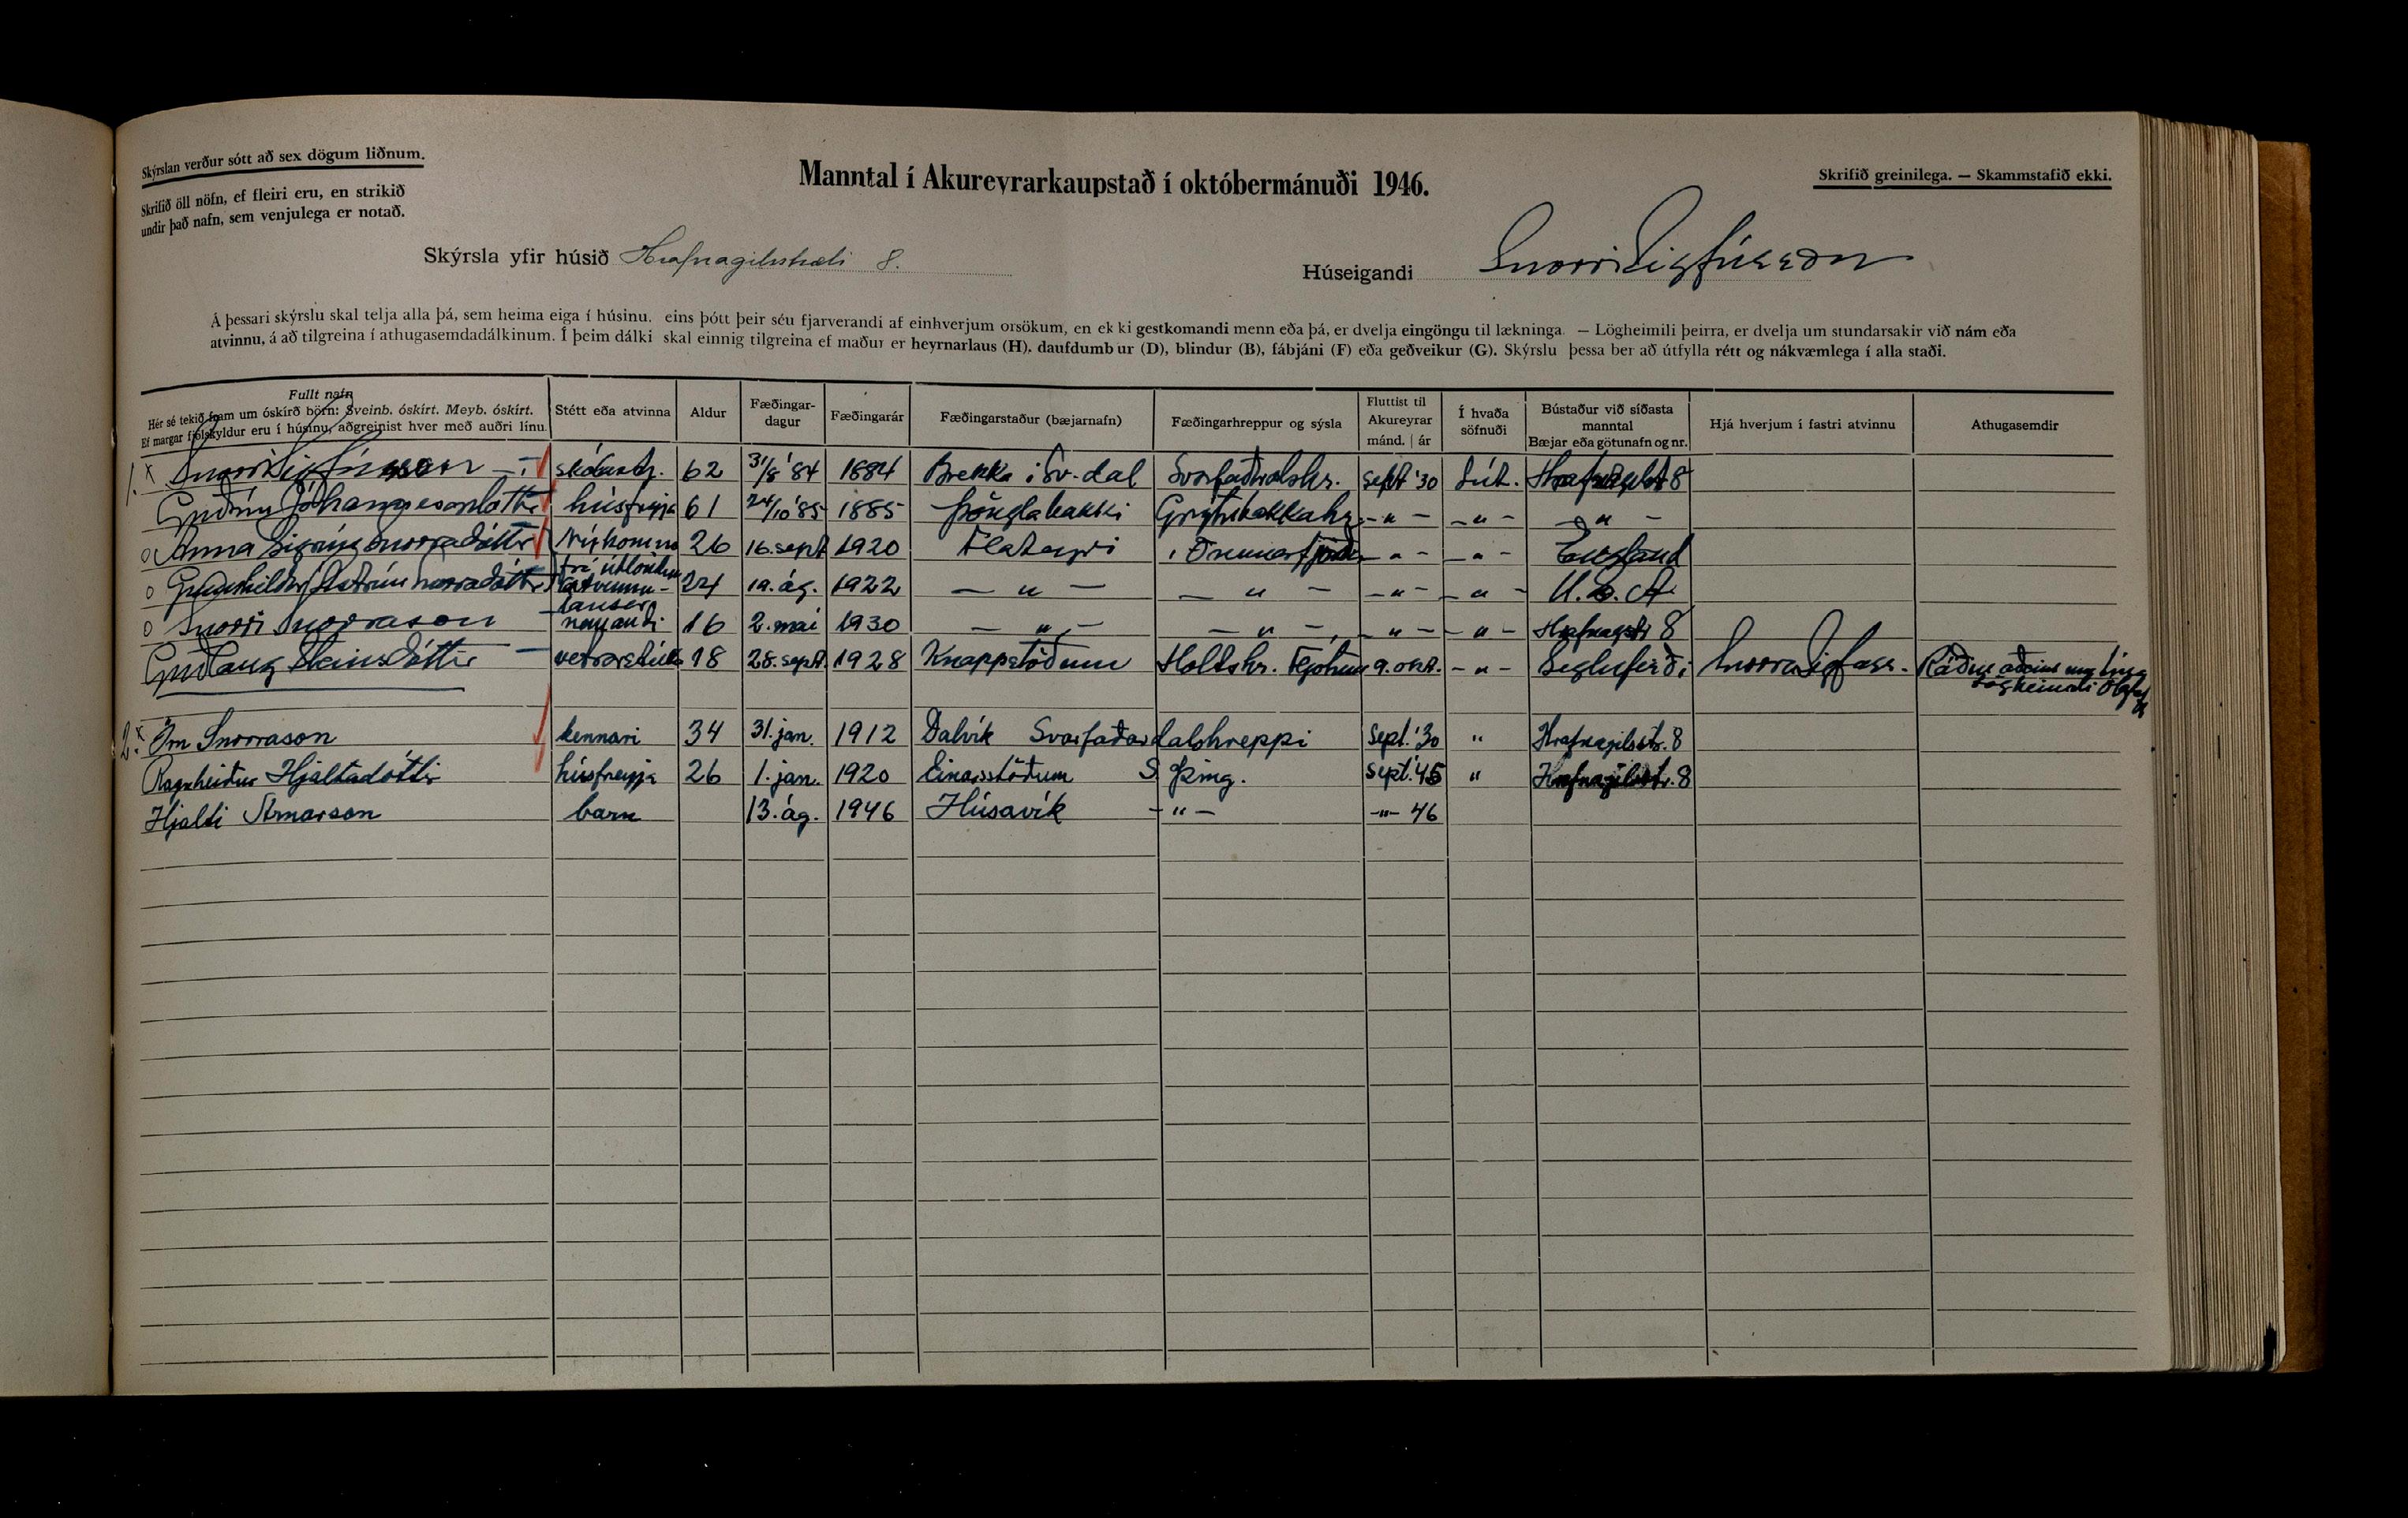 Skýrslan verður sótt að sex dögum liðnum.
Skrifið öll nöfn, ef fleiri eru, en strikið
undir það nafn, sem venjulega er notað.
Manntal í Akureyrarkaupstað í októbermánuði 1946.
Skrifið greinilega. — Skammstafið ekki.
Skýrsla yfir húsið Hrafnagilsstræti 8.
Húseigandi Snorri Sigfússon
Á þessari skýrslu skal telja alla þá, sem heima eiga í húsinu. eins þótt þeir séu fjarverandi af einhverjum orsökum, en ekki gestkomandi menn eða þá, er dvelja eingöngu til lækninga. — Lögheimili þeirra, er dvelja um stundarsakir við nám eða
atvinnu, á að tilgreina í athugasemdadálkinum. Í þeim dálki skal einnig tilgreina ef maður er heyrnarlaus (H). daufdumbur (D), blindur (B), fábjáni (F) eða geðveikur (G). Skýrslu þessa ber að útfylla rétt og nákvæmlega í alla staði.
Fullt nafn
Hér sé tekið fram um óskírð börn: Sveinb. óskírt. Meyb. óskírt.
Ef margar fjölskyldur eru í húsinu, aðgreinist hver með auðri línu.
Stétt eða atvinna
Aldur
Fæðingar-
dagur
Fæðingarár
Fæðingarstaður (bæjarnafn)
Fæðingarhreppur og sýsla
Fluttist til
Akureyrar
mánd. | ár
Í hvaða
söfnuði
Bústaður við síðasta
manntal
Bæjar eða götunafn og nr.
Hjá hverjum í fastri atvinnu
Athugasemdir
1. x Snorri Sigfússon skólastj. 62 31/8 '84 1884 Brekka í Sv.dal Svarfaðardalshr. sept '30 Lút. Hrafnagilsst 8
Guðrún Jóhannesdóttir húsfreyja 61 24/10 '85 1885 Þönglabakki Grýtubakkahr. -"- -"- -"-
o Anna Sigrún Snorradóttir Nýkomna 26 16. sept 1920 Flateyri í Önunarfjörður -"- -"- England
frá útlöndum
o Gunnhildur Snorradóttir atvinnu- 24 19. ág. 1922 -"- -"- -"- -"- U.S.A.
lausar
o Snorri Snorrason nemandi 16 2. maí 1930 -"- -"- -"- -"- Hrafnagstr 8
Guðlaug Steinsdóttir vetrarstúlka 18 28. sept. 1928 Knappstöðum Holtshr. Fljótum 9. okt. -"- Siglufirði Snorra Sigfúss.
2. x Örn Snorrason kennari 34 31. jan. 1912 Dalvík Svarfaðardalshreppi Sept. '30 " Hrafnagilsstr. 8
Ragnheiður Hjaltadóttir húsfreyja 26 1. jan. 1920 Einarsstöðum S. Þing. Sept. '45 " Hrafnagilsstr. 8
Hjalti Arnarson barn 13. ág. 1946 Húsavík -"- -"- 46